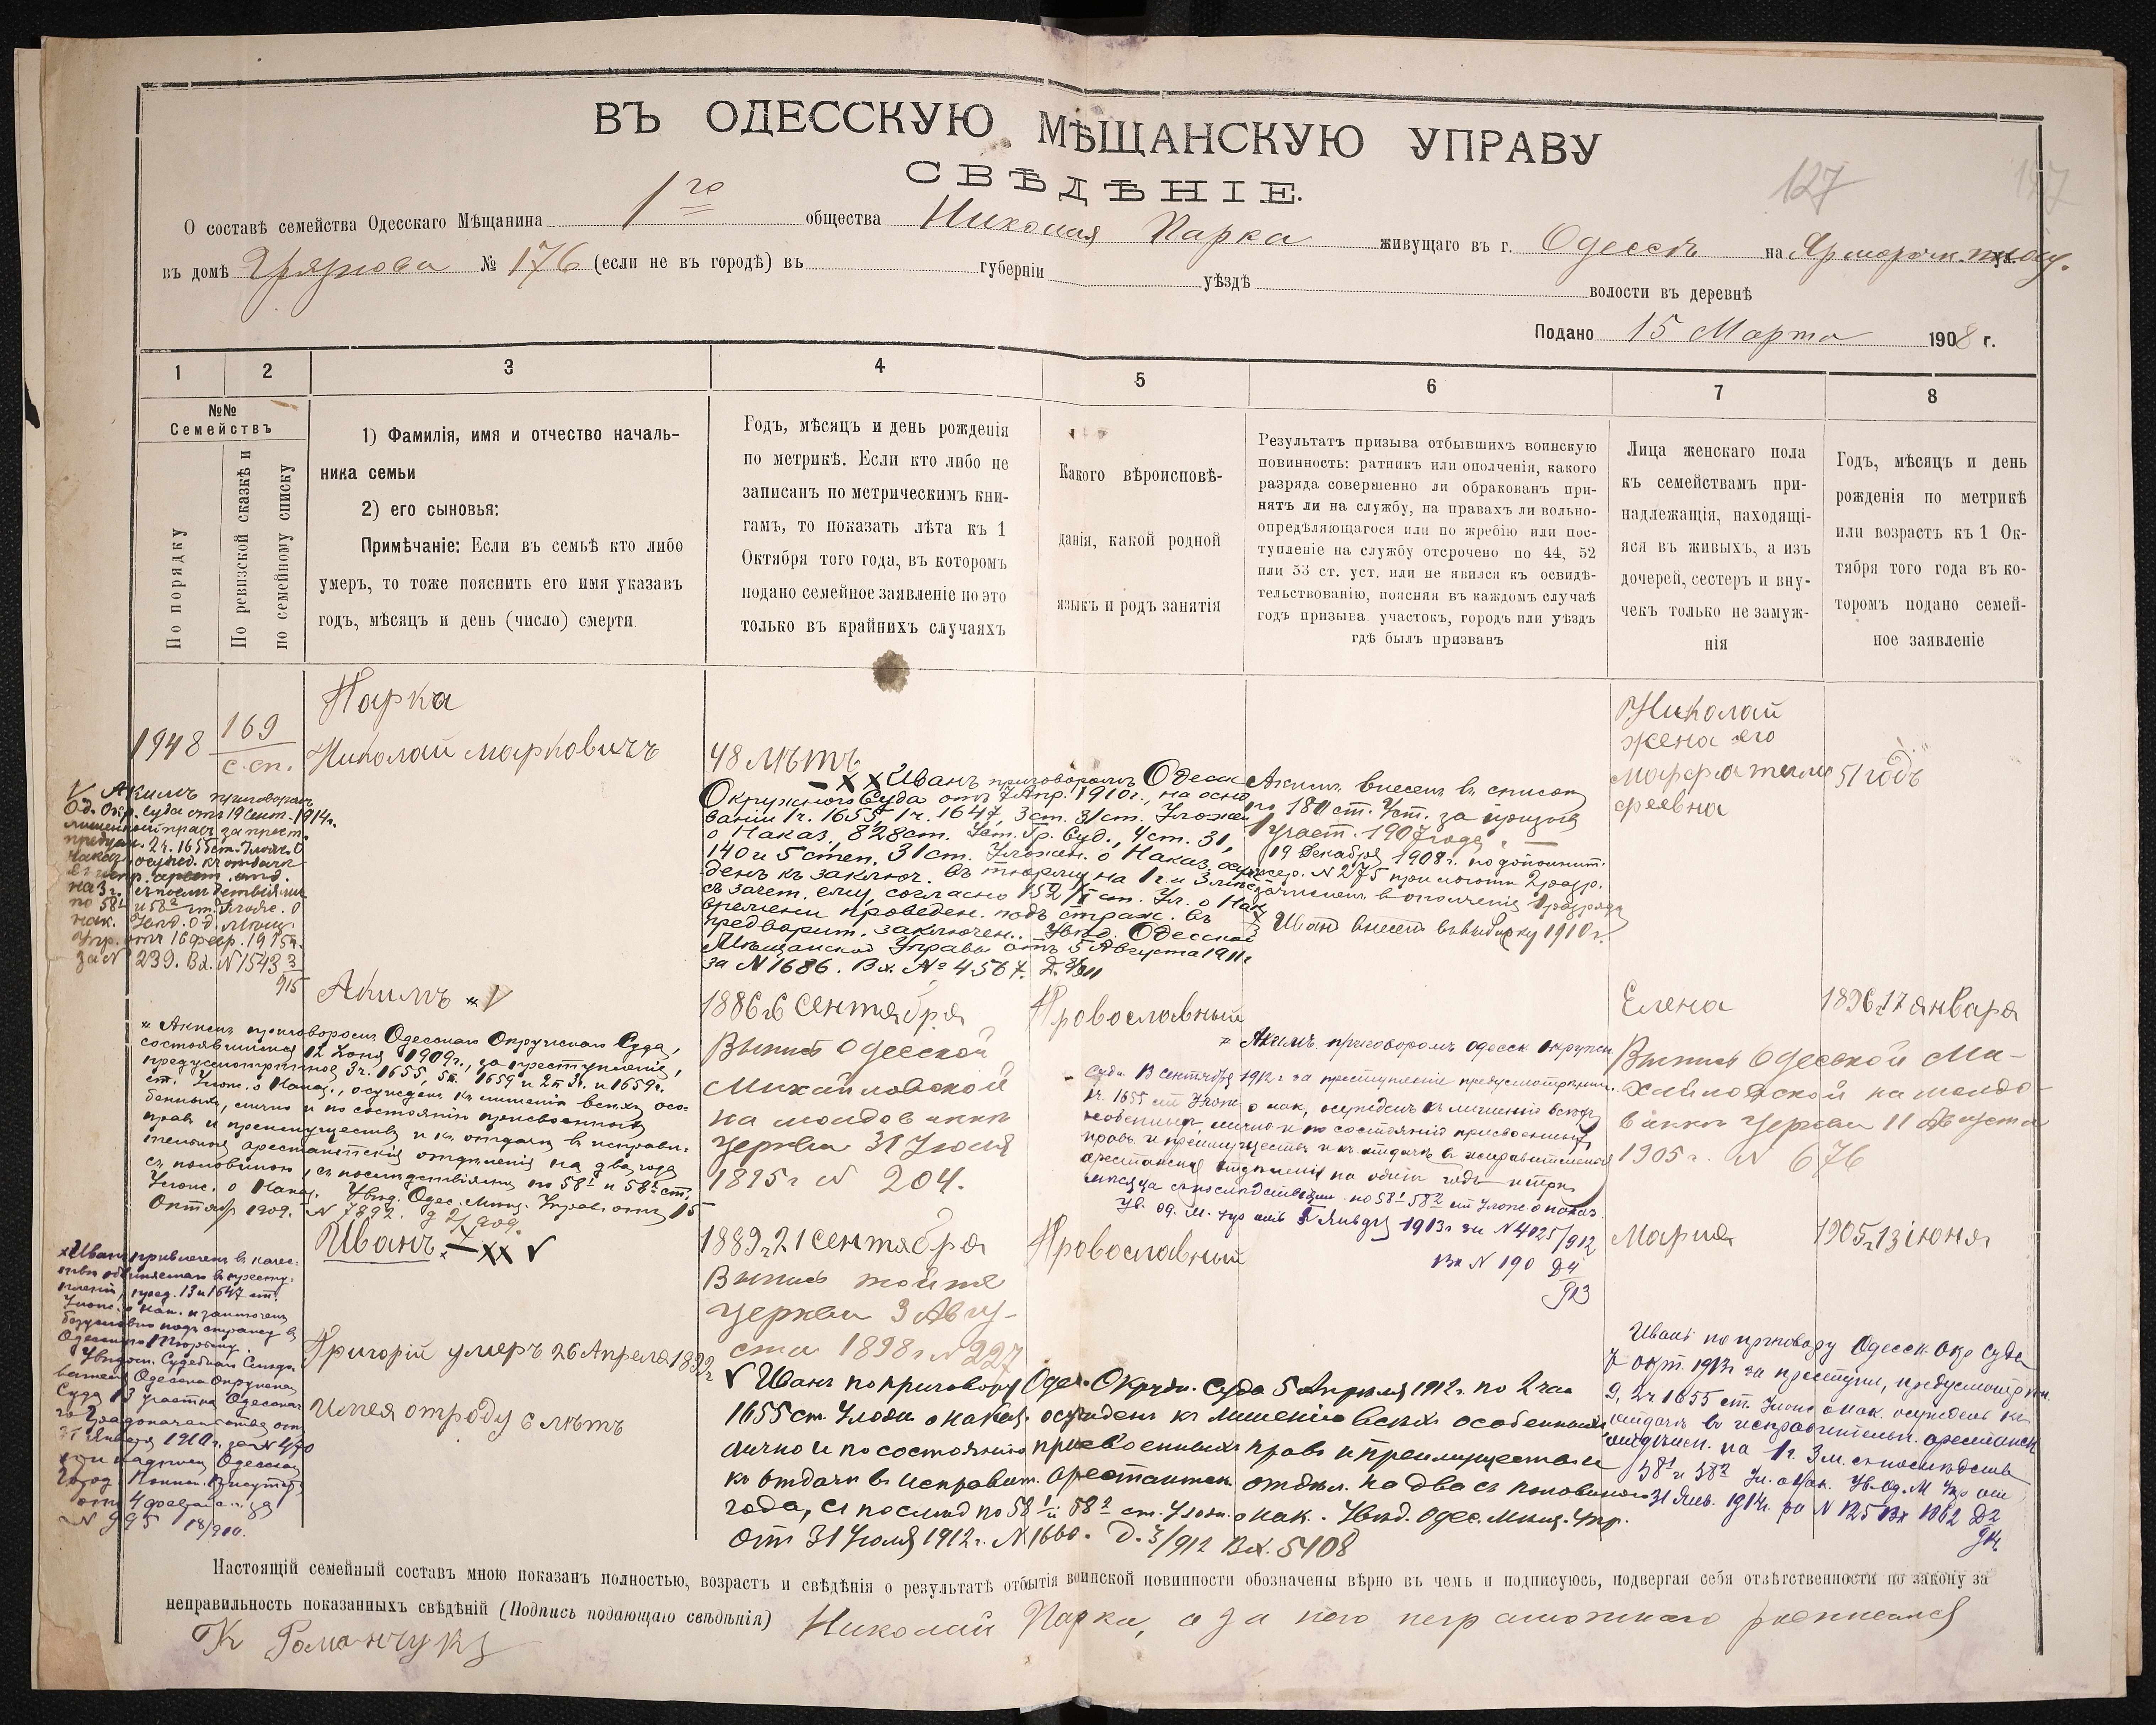 ВЪ ОДЕССКУЮ МѢЩАНСКУЮ УПРАВУ
СВѢДѢНІЕ.
127
О составѣ семейства Одесскаго Мѣщанина 1го общества Николая Парка живущаго въ г. Одессѣ на Ярморочн.
въ домѣ Грязнова № 176 (если не въ городѣ) въ губерніи уѣздѣ волости въ деревнѣ
Подано 15 Марта 1908 г.
1 2 3 4 5 6 7 8
№№
Семействъ
По порядку
По ревизской сказкѣ и
по семейному списку
1) Фамилія, имя и отчество началь-
ника семьи
2) его сыновья:
Примѣчаніе: Если въ семьѣ кто либо
умеръ, то тоже пояснить его имя указавъ
годъ, мѣсяцъ и день (число) смерти
Годъ, мѣсяцъ и день рожденія
по метрикѣ. Если кто либо не
записанъ по метрическимъ кни-
гамъ, то показать лѣта къ 1
Октября того года, въ которомъ
подано семейное заявленіе по это
только въ крайнихъ случаяхъ
Какого вѣроисповѣ-
данія, какой родной
языкъ и родъ занятія
Результатъ призыва отбывшихъ воинскую
повинность: ратникъ или ополченія, какого
разряда совершенно ли обракованъ при-
нятъ ли на службу, на правахъ ли вольно-
опредѣляющагося или по жребію или пос-
тупленіе на службу отсрочено по 44, 52
или 53 ст. уст. или не явился къ освидѣ-
тельствованію, поясняя въ каждомъ случаѣ
годъ призыва участокъ, городъ или уѣздъ
гдѣ былъ призванъ
Лица женскаго пола
къ семействамъ при-
надлежащія, находящі-
яся въ живыхъ, а изъ
дочерей, сестеръ и вну-
чекъ только не замуж-
нія
Годъ, мѣсяцъ и день
рожденія по метрикѣ
или возрастъ къ 1 Ок-
тября того года въ ко-
торомъ подано семей-
ное заявленіе
1948
169
с. сп.
Парка
Николай Марковичъ
48 лѣтъ
Николай
жена его
Марфа
феевна
51 годъ
V Акимъ приговоромъ
Од. Окр. Суда отъ 19 Сент. 1914г.
предусм. 2 ч. 1655 ст. Улож. о
наказ. осужд. къ отдачѣ
въ испр. арест. отд.
по 58¹ и 58² ст. Улож. о
нак. Увѣд. Од. Мѣщ.
Упр. отъ 16 февр. 1915г.
за № 239. Вх. № 1543 3/915
— X X Иванъ приговоромъ Одесс
Окружного Суда отъ 7 Апр. 1910г., на осно
ваніи 1 ч. 1655, 1 ч. 1647, 3 ст. 31 ст. Уложен
о Наказ., 828 ст. Уст. Гр. Суд., 4 ст. 31,
140 и 5 степ. 31 ст. Уложен. о Наказ. осуж
денъ къ заключ. въ тюрьму на 1 г. и 3 мѣс.
съ зачет. ему, согласно 152/1 ст. Ул. о Нак
времени проведен. подъ страж. въ
предварит. заключен. Увѣд. Одесской
Мѣщанской Управы отъ 5 Августа 1911г
за № 1686. Вх. № 4567.
Акимъ внесенъ въ списокъ
по 180 ст. Уст. за призывъ
1 участ. 1907 года. —
19 Декабря 1908г. по дополнит.
жер. № 275 при льготѣ 2 разр.
зачисленъ въ ополченіе 1 разряда
Иванъ внесенъ въ выборку 1910 г.
Акимъ × V
1886 г 6 Сентября
Православный
Елена
1896 г 17 января
Выпись Одесской
Михайловской
на молдованкѣ
церкви 31 Іюля
1895 г № 204.
Выпись Одесской Ми-
хайловской на молдо-
ванкѣ церкви 11 Августа
1905 г. № 676
× Акимъ приговоромъ Одесскаго Окружнаго Суда,
состоявшимся 12 Іюня 1909г., за преступленіе,
предусмотрѣнное 3 ч. 1655, 5 п. 1659 и 2 п 3 ч. и 1659¹
ст. Улож. о Наказ., осужденъ къ лишенію всѣхъ осо-
бенныхъ, лично и по состоянію присвоенныхъ
правъ и преимуществъ и къ отдачѣ въ исправи-
тельныя арестантскія отдѣленія на два года
съ половиною, съ послѣдствіями по 58¹ и 58² ст.
Улож. о Наказ. Увѣд. Одес. Мѣщ. Управ. отъ 15
Октября 1909. № 7892.
× Акимъ приговоромъ Одесск Окружн
Суда 13 Сентября 1912 г. за преступленіе предусмотрѣнн.
1 ч. 1655 ст Улож. о нак, осужденъ къ лишенію всѣхъ
особенныхъ, лично и по состоянію присвоенныхъ
правъ и преимуществъ и къ отдачѣ въ исправительныя
арестанскія отдѣленія на одинъ годъ и три
мѣсяца съ послѣдствіями по 58¹ 58² ст Улож. о наказ.
Ув. Од. М. Упр отъ 5 Января 1913г за № 4025/912
Вх № 190 Д4/913
Иванъ × — XX V
1889 г 21 Сентября
Православный
Марія
1905 г 13 іюня
Выпись тойже
церкви 3 Авгу-
ста 1898 г № 227
× Иванъ привлеченъ въ качес-
твѣ обвиняемаго въ престу-
пленіи, пред. 13 и 1647 ст.
Улож. о нак. и заключенъ
подъ стражу въ
Одесскую тюрьму.
Увѣдом. Судебнаго Слѣдо-
вателя Одесскаго Окружнаго
Суда 13 участка Одесскаго
Градоначальства отъ
31 Января 1910 г. за № 470
при надписи Одесской
отъ 4 февраля
№ 995 18/910.
Григорій умеръ 26 Апреля 1892 г
Имея отроду 6 лѣтъ
V Иванъ по приговору Одес. Окружн. Суда 5 Апрѣля 1912 г. по 2 час
1655 ст. Улож. о наказ. осужденъ къ лишенію всѣхъ особенныхъ
лично и по состоянію присвоенныхъ правъ и преимуществъ и
къ отдачѣ въ исправит. арестантск. отдѣл. на два съ половиною
года, съ послѣд по 58¹ и 58² ст. Улож. о нак. Увѣд. Одес. Мѣщ. Упр.
отъ 31 Іюля 1912 г. № 1660. Д. 3/912 Вх. 5408
Иванъ по приговору Одесск. Окр Суда
7 окт. 1913г за преступл., предусмотрѣн.
9, 2 ч 1655 ст. Улож о нак. осужденъ къ
отдачѣ въ исправительн. арестанск
отдѣлен. на 1 г. 3 м. съ послѣдств
58¹ и 58² Ул. о Нак. Ув. Од. М Упр отъ
31 Янв. 1914г. за № 125 Вх 1062 Д2/914
Настоящій семейный составъ мною показанъ полностью, возрастъ и свѣдѣнія о результатѣ отбытія воинской повинности обозначены вѣрно въ чемъ и подписуюсь, подвергая себя отвѣтственности по закону за
неправильность показанныхъ свѣдѣній (Подпись подающаго свѣдѣнія) Николай Парка, а за него неграмотнаго росписался
К Романчукъ